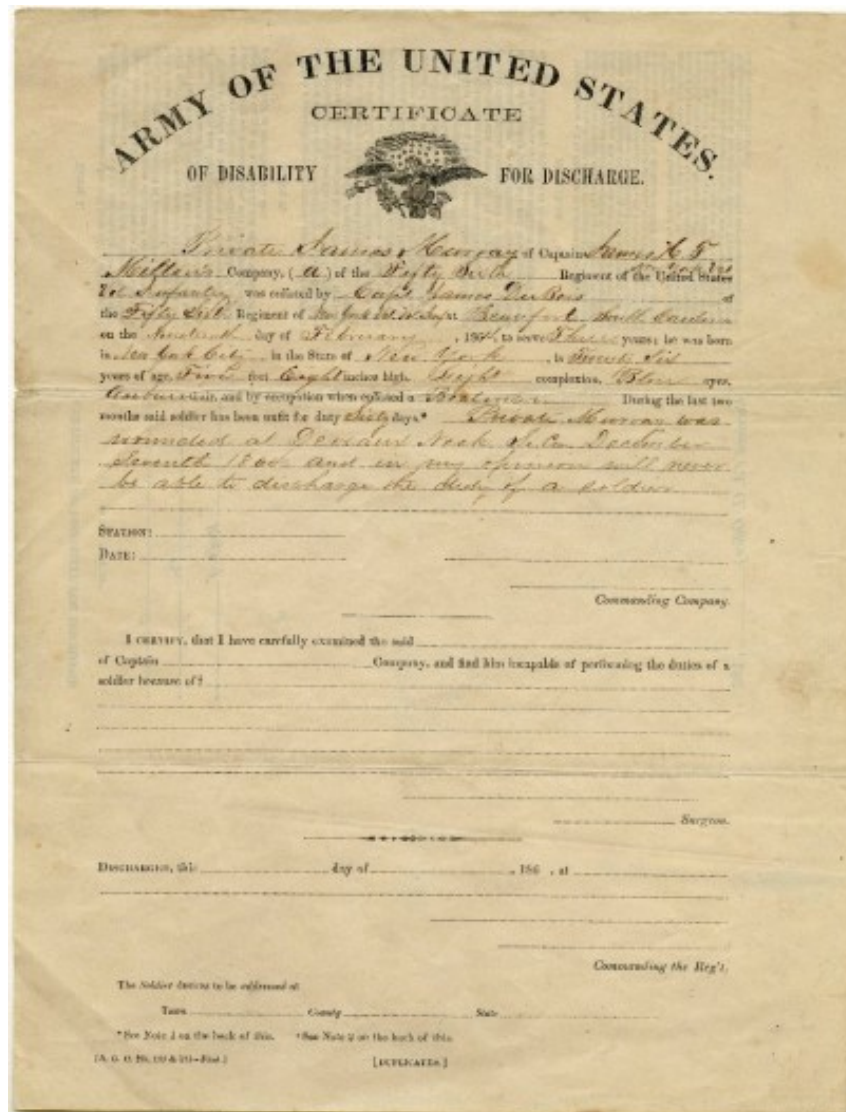 ARMY OF THE UNITED STATES.
CERTIFICATE
OF DISABILITY FOR DISCHARGE.
Private James Murray of Captain James H. F.
Company, (A) of the Fifty Sixth Regiment of the United States
Vol Infantry was enlisted by Capt James DuBois of
the Fifty Sixth Regiment of New York at Beaufort South Carolina
on the Nineteenth day of February, 1864, to serve Three years; he was born
in New York City in the State of New York, is Twenty Six
years of age, Five feet Eight inches high, Light complexion, Blue eyes,
Auburn hair, and by occupation when enlisted a Boatman. During the last two
months said soldier has been unfit for duty Sixty days.* Private Murray was
wounded at Deveaux Neck S. Ca. December
Seventh 1864 and in my opinion will never
be able to discharge the duty of a soldier
STATION:
DATE:
Commanding Company.
I CERTIFY, that I have carefully examined the said
of Captain Company, and find him incapable of performing the duties of a
soldier because of†
Surgeon.
DISCHARGED, this day of , 186 , at
Commanding the Reg't.
The Soldier desires to be addressed at
Town County State
*See Note 1 on the back of this. †See Note 2 on the back of this.
[DUPLICATES.]